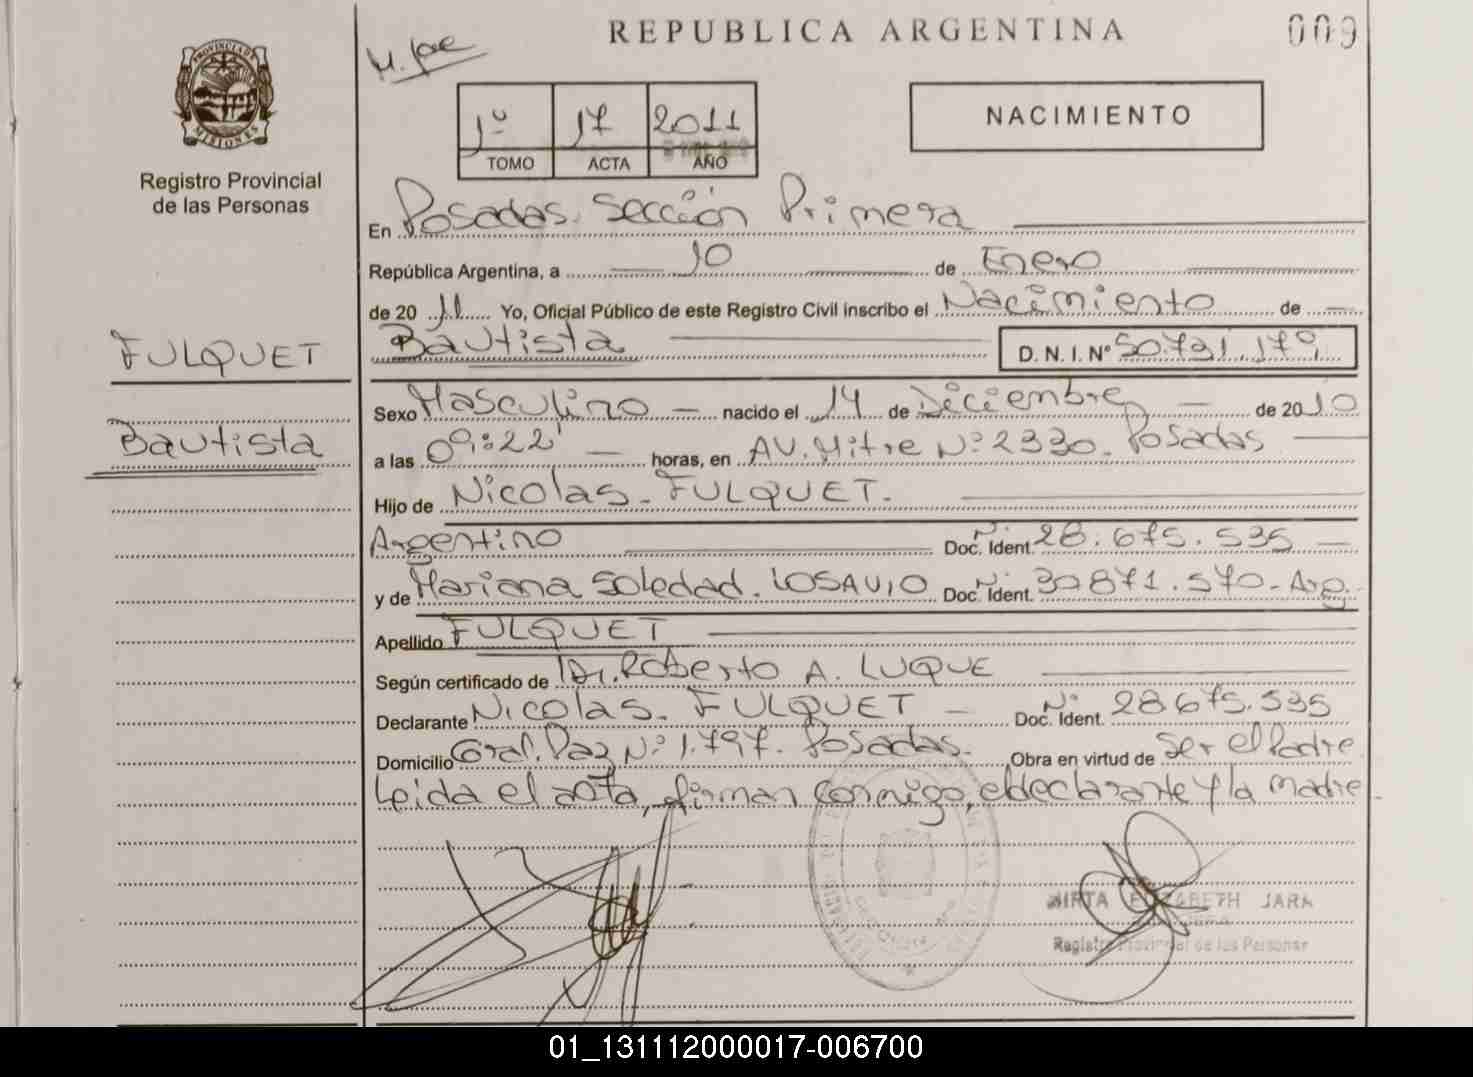 REPUBLICA ARGENTINA
009
PROVINCIA DE MISIONES
Registro Provincial
de las Personas
M. Jose
1º 17 2011
TOMO ACTA AÑO
NACIMIENTO
En Posadas. Sección Primera
República Argentina, a 10 de Enero
de 2011 Yo, Oficial Público de este Registro Civil inscribo el Nacimiento de
Bautista D. N. I. Nº 50.791.179
FULQUET
Bautista
Sexo Masculino nacido el 14 de Diciembre de 2010
a las 09:22' horas, en AV. Mitre Nº 2330. Posadas
Hijo de Nicolas. FULQUET.
Argentino Doc. Ident. Nº 28.675.535
y de Mariana Soledad. LOSAVIO Doc. Ident. Nº 30871.570-Arg.
Apellido FULQUET
Según certificado de Dr. Roberto A. LUQUE
Declarante Nicolas. FULQUET Doc. Ident. Nº 28675.535
Domicilio Gral. Paz Nº 1.797. Posadas. Obra en virtud de Ser el Padre
Leida el acta, firman conmigo, el declarante y la madre
MIRTA ELIZABETH JARA
Registro Provincial de las Personas
01_131112000017-006700